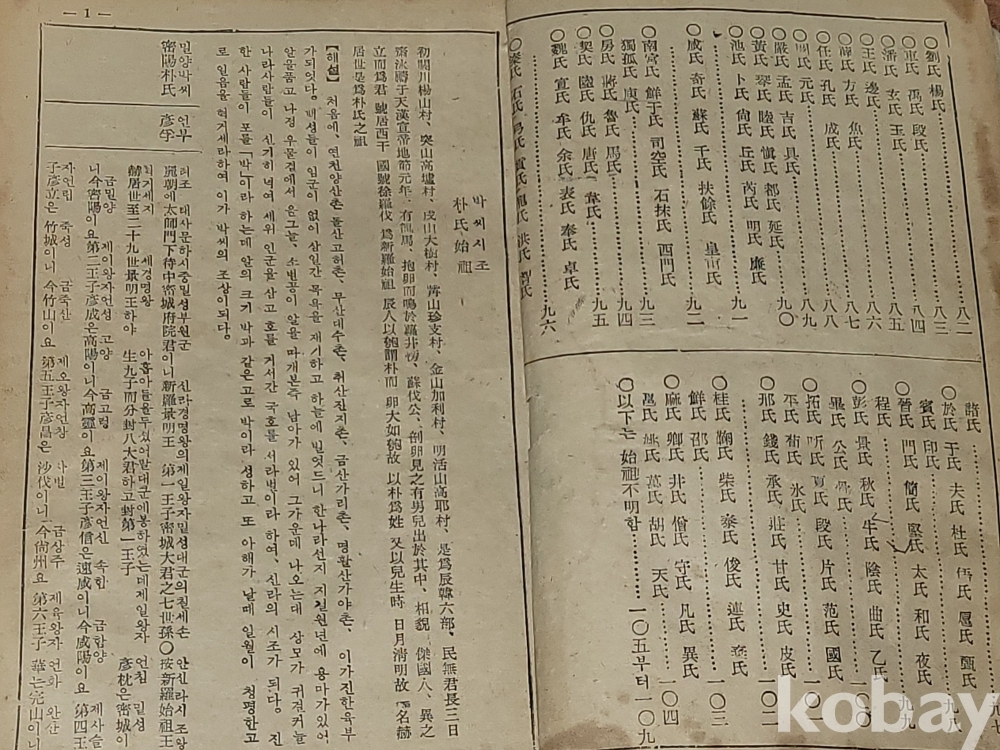 ○劉氏 楊氏……八二
○東氏 馮氏 段氏……八三
○潘氏 玄氏 玉氏……八四
○王氏 邊氏……八六
○薛氏 方氏 魚氏……八七
○任氏 孔氏 成氏……八八
元氏……八九
○嚴氏 孟氏 吉氏 具氏……九〇
○黃氏 琴氏 睦氏 愼氏 都氏 延氏
○池氏 卜氏 尙氏 丘氏 芮氏 明氏 廉氏……九一
○咸氏 奇氏 蘇氏 千氏 扶餘氏 皇甫氏……九二
○南宮氏 鮮于氏 司空氏 石抹氏 西門氏……九三
獨孤氏 庾氏……九四
○房氏 蔣氏 魯氏 馬氏
○契氏 陸氏 仇氏 唐氏 韋氏……九五
○魏氏 宣氏 牟氏 余氏 表氏 奉氏 卓氏
○秦氏 石氏……九六
諸氏
○於氏 于氏 夫氏 杜氏
賓氏 印氏
○晉氏 門氏 簡氏 堅氏 太氏 和氏 夜氏……九九
程氏
○彭氏 景氏 秋氏 牛氏 陰氏 曲氏 乙氏……一〇〇
公氏
○拓氏 昕氏 夏氏 段氏 片氏 范氏 國氏……一〇一
平氏 氷氏
○邢氏 錢氏 承氏 莊氏 甘氏 史氏 皮氏……一〇二
○桂氏 鞠氏 柴氏 泰氏 俊氏 連氏……一〇三
鮮氏 邵氏
○麻氏 卿氏 非氏 僧氏 守氏 凡氏 異氏……一〇四
姚氏 萬氏 胡氏 天氏
○以下는 始祖不明함……一〇五부터 一〇九
— 1 —
박씨시조
朴氏始祖
初閼川楊山村、突山高墟村、茂山大樹村、觜山珍支村、金山加利村、明活山高耶村、是爲辰韓六部、民無君長三日
齋沐禱于天漢宣帝地節元年、有龍馬、抱卵而鳴於蘿井傍、蘇伐公、剖卵見之有男兒出於其中、相貌 傑國人、異之
立而爲君 號居西干 國號徐羅伐 爲新羅始祖 辰人以瓠謂朴而 卵大如瓠故 以朴爲姓 又以兒生時 日月淸明故 名赫
居世是爲朴氏之祖
【해설】 처음에、연천양산촌 돌산고허촌、무산대수촌、취산진지촌、금산가리촌、명활산가야촌、이가진한육부
가되엿다。백성들이 임군이 없이 삼일간 목욕을 재기하고 하늘에 빌엇드니 한나라선지 지절원년에 용마가있어、
알을품고 나정 우물겯에서 울그늘、소벌공이 알을 따개본즉 남아가 있어 그가운데 나오는대 상모가 귀걸커늘
나라사람들이 신기히 녁여 세위 인군을 삼고 호를 거서간 국호를、서라벌이라 하여、신라의 시조가 되다。진
한 사람들이 포를「박」이라 하는데 알의 크기 박과 같은고로 박이라 성하고 또 아해가 날때 일월이 청명한고
로 일음을 혁거세라하여 이가 박씨의 조상이되다。
밀양박씨 언부
密陽朴氏 彦孚
려조 태사문하시중밀성부원군 신라경명왕의제일왕자밀성대군의칠세손 안신라시조왕
麗朝에太師門下侍中密城府院君이니新羅景明王 第一王子密城大君之七世孫○按新羅始祖王
혁거세지 세경명왕 아홉아들을두섰어팔대군에봉하였는데제일왕자 언침 밀성
赫居世至二十九世景明王하야 生九子而分封八大君하고封第一王子 彦枕은密城이
금밀양 제이왕자언성 고양 금고령 제이왕자언신 속함 금함양 제사
니今密陽이요第二王子彦成은高陽이니今高靈이요第三王子彦信은速咸이니今咸陽이요第四王
자언립 죽성 금죽산 제오왕자언창 사벌 금상주 제육왕자 언화 완산
子彦立은竹城이니今竹山이요 第五王子彦昌은 沙伐이니今尙州요 第六王子 華는完山이니
kobay